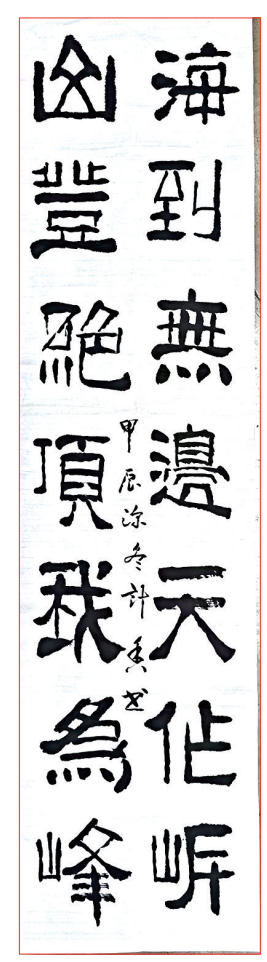 海到無邊天作岸
山登絕頂我為峰
甲辰深冬計書